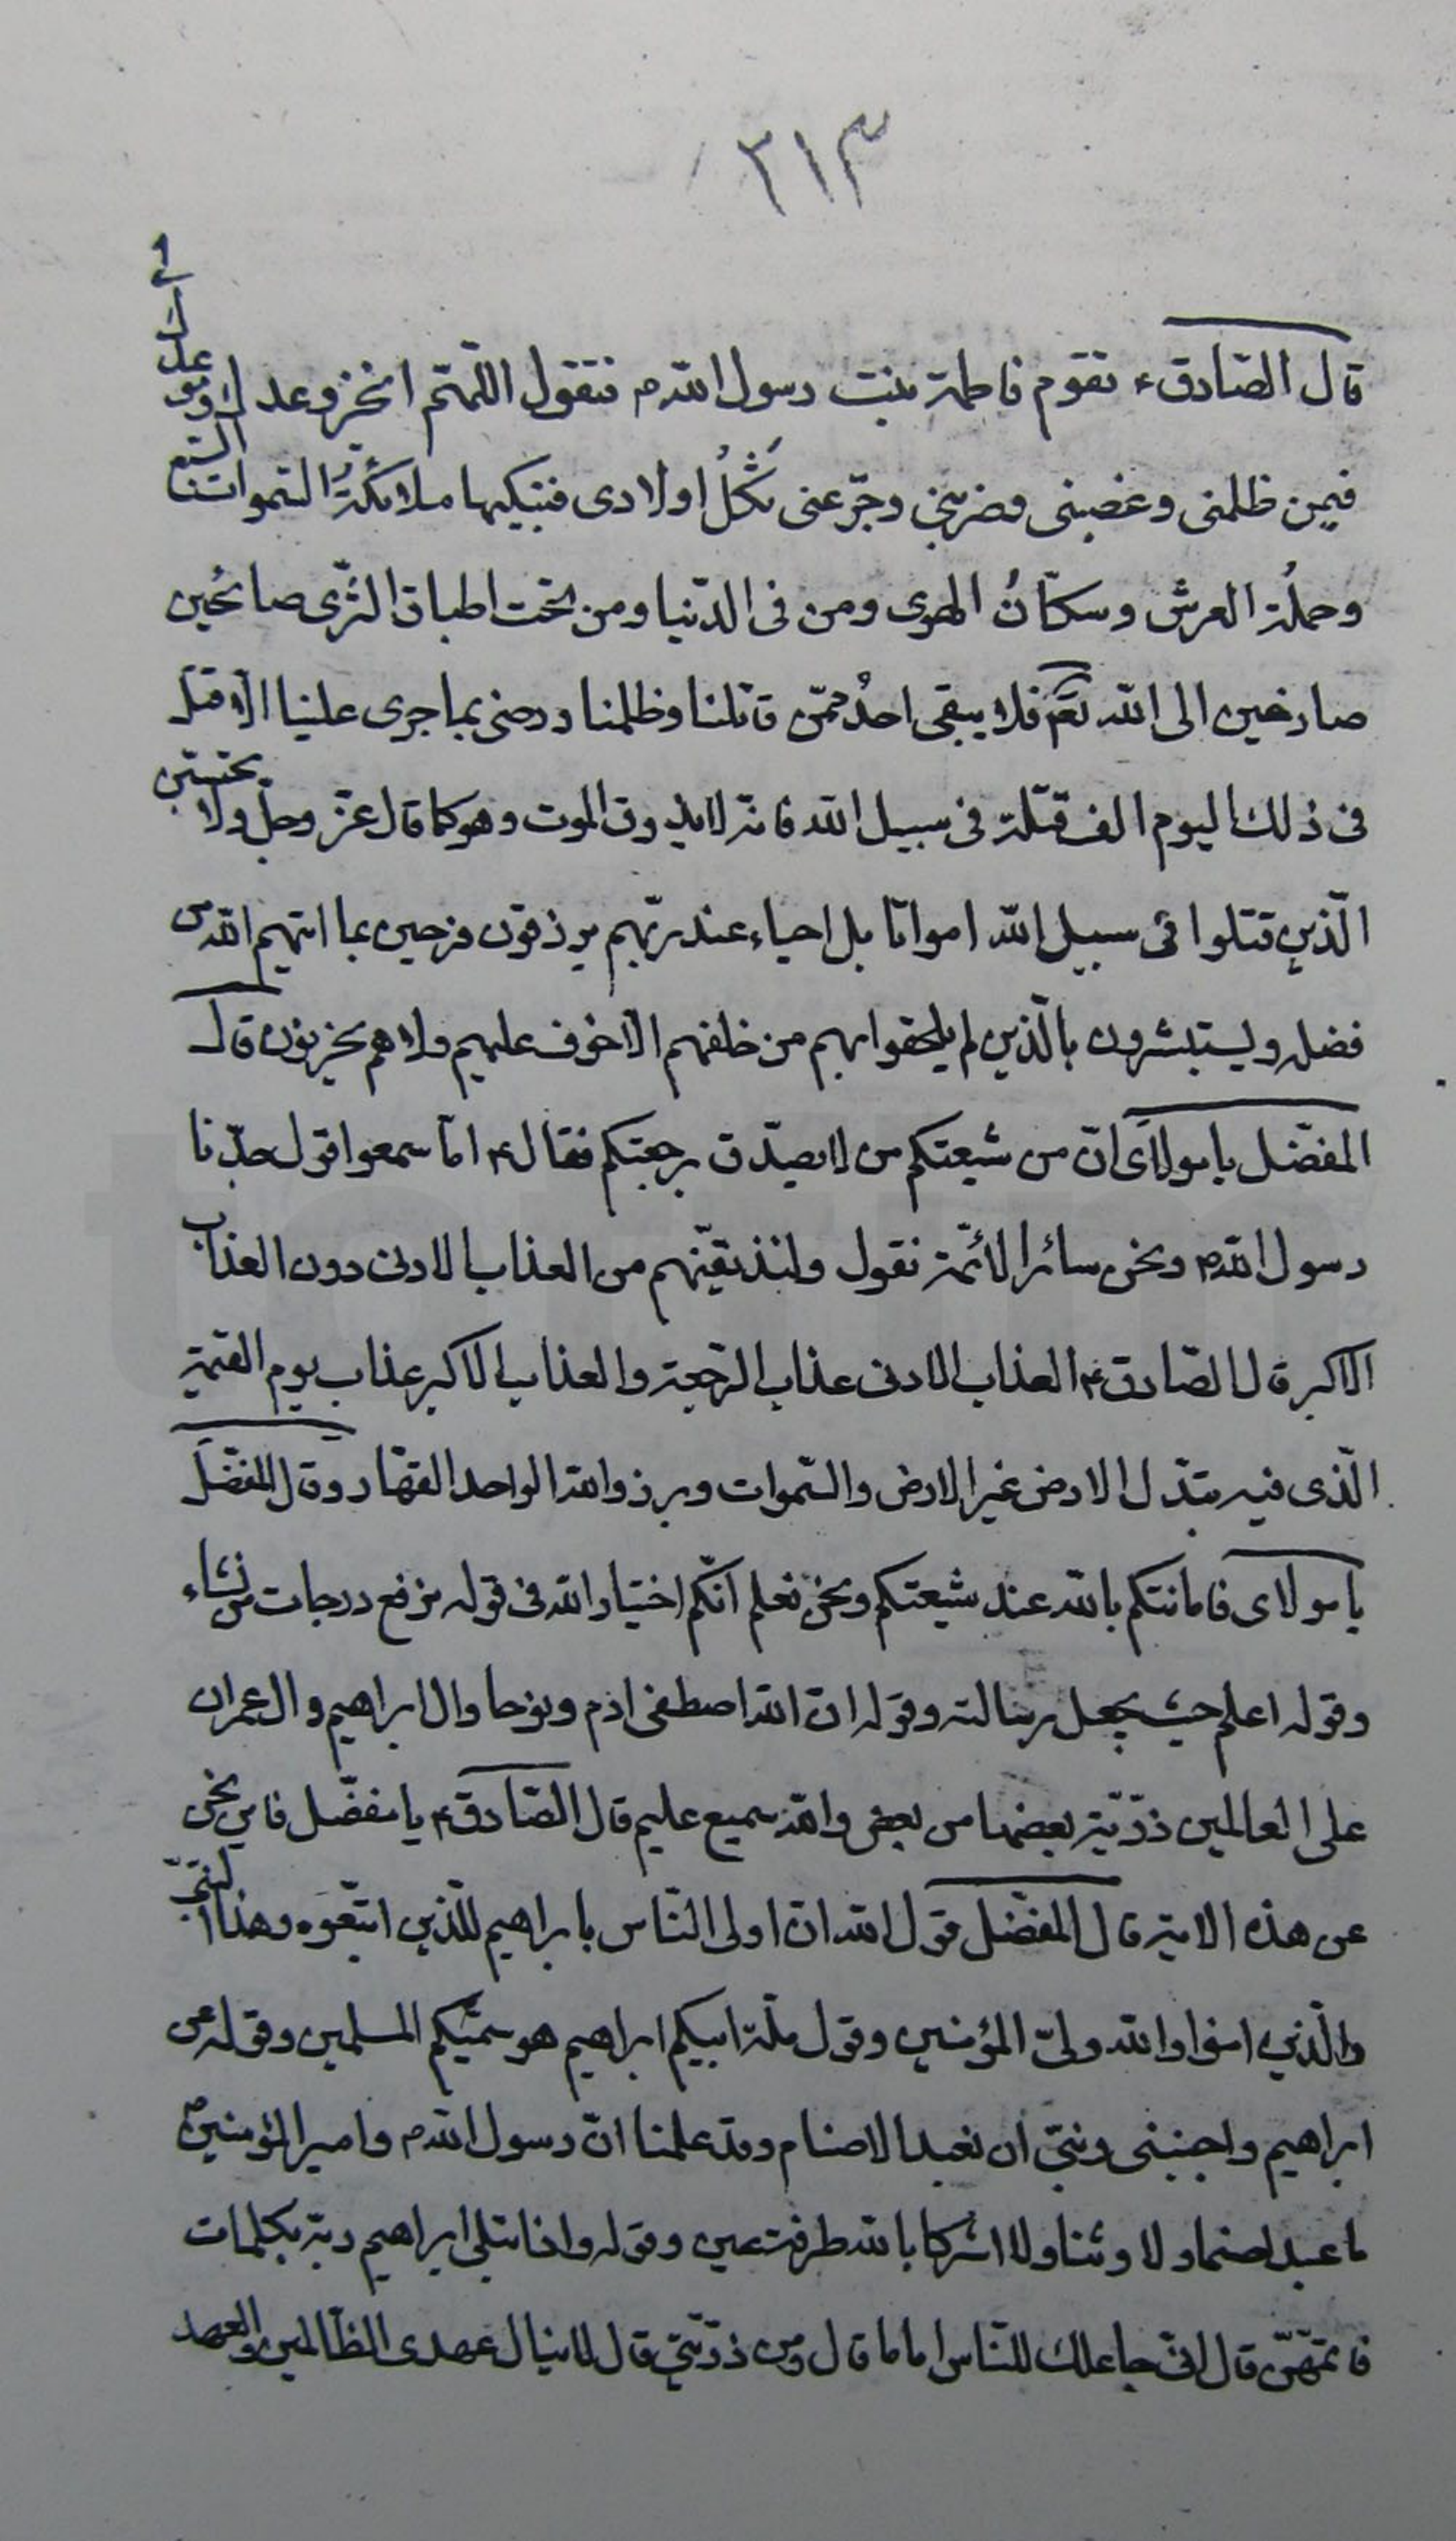 ٣١٣
قال الصّادق ع تقوم فاطمة بنت رسول اللّه ص فتقول اللّهمّ انجز وعدك وموعدك لى
فيمن ظلمنى وغصبنى وضربنى وجرّعنى ثُكْلُ اولادى فتبكيها ملائكةُ السّموات السّبع
وحملُة العرش وسكّانُ الهوى ومن فى الدّنيا ومن تحت اطباق الثّرى صائحين
صارخين الى اللّه تعم فلا يبقى احدٌ ممّن قاتلنا وظلمنا ورضى بما جرى علينا الّا قتل
فى ذلك اليوم الف قتلة فى سبيل اللّه فانّه لا يذوق الموت وهو كما قال عزّ وجلّ ولا تحسبنّ
الّذين قتلوا فى سبيل اللّه امواتا بل احياء عند ربّهم يرزقون فرحين بما اتيهم اللّه من
فضله ويستبشرون بالّذين لم يلحقوا بهم من خلفهم الّا خوف عليهم ولا هم يحزنون قال
المفضّل يا مولاى انّ من شيعتكم من لا يصدّق برجعتكم فقال ع اما سمعوا قول جدّنا
رسول اللّه ص ونحن سائر الأئمّة نقول ولنذيقنّهم من العذاب الادنى دون العذاب
الاكبر قال الصّادق ع العذاب الادنى عذاب الرّجعة والعذاب الاكبر عذاب يوم القيمة
الّذى فيه تبدّل الارض غير الارض والسّموات وبرزوا للّه الواحد القهّار وقال المفضّل
يا مولاى فامانتكم باللّه عند شيعتكم ونحن نعلم انّكم اختيار اللّه فى قوله نرفع درجات من نشاء
وقوله اعلم حيث يجعل رسالته وقوله ان اللّه اصطفى ادم ونوحا وال ابراهيم وال عمران
على العالمين ذرّيّة بعضها من بعض واللّه سميع عليم قال الصّادق ع يا مفضّل فاين نحن
عن هذه الاية قال المفضّل قول اللّه ان اولى النّاس بابراهيم للّذين اتّبعوه وهذا النّبىّ
والّذين امنوا واللّه ولىّ المؤمنين وقول ملّة ابيكم ابراهيم هو سمّيكم المسلمين وقوله عن
ابراهيم واجنبنى وبنىّ ان نعبد الاصنام وقد علمنا انّ رسول اللّه ص وامير المؤمنين ع
ما عبدا صنما ولا وثنا ولا اشركا باللّه طرفة عين وقوله واذ ابتلى ابراهيم ربّه بكلمات
فاتمّهنّ قال انّى جاعلك للنّاس اماما قال ومن ذرّيّتى قال لا ينال عهدى الظّالمين والعهد